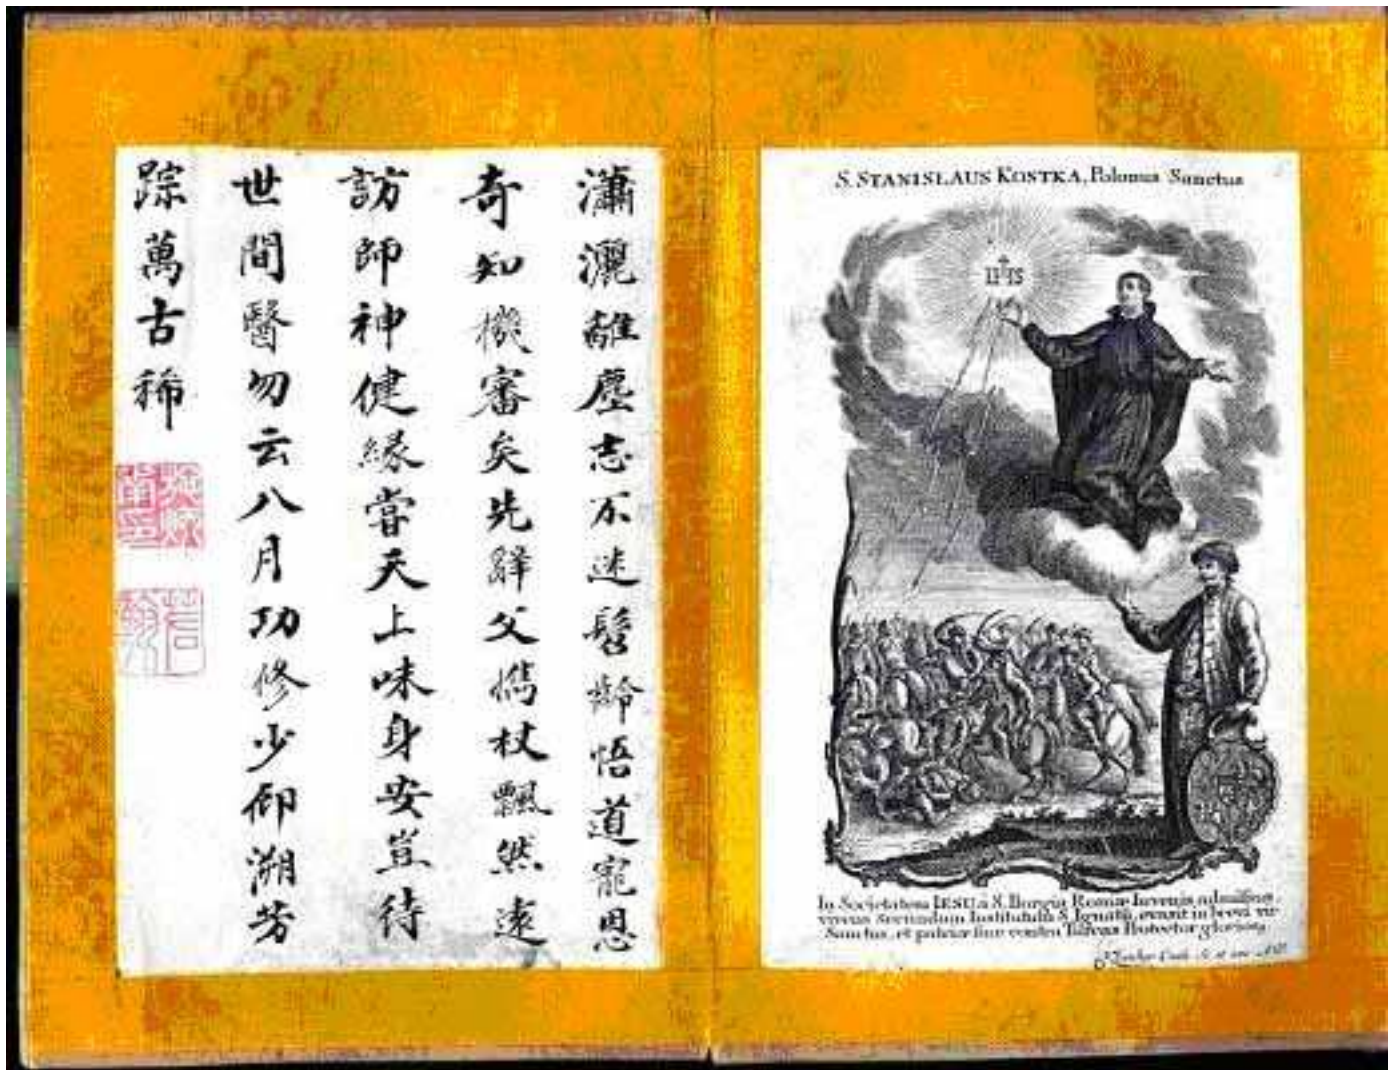 瀟灑離塵志不迷髫齡悟道寵恩
奇知機審矣先辭父擕杖飄然遠
訪師神健緣嘗天上味身安豈待
世間醫勿云八月功修少仰溯芳
踪萬古稀
S. STANISLAUS KOSTKA, Polonus Sanctus
IHS
In Societatem IESU a S. Borgia Romæ Iuvenis admissus,
vivens Secundum Institutum S. Ignatii, evasit in brevi vir
Sanctus, et patriæ suæ contra Turcas Protector gloriosus
Klauber Cath. Sc. et exc.